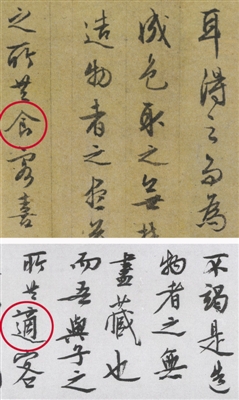 耳得之而為
成色取之無
造物者之
之所共食客喜
不竭是造
物者之無
盡藏也
而吾與子之
所共適客